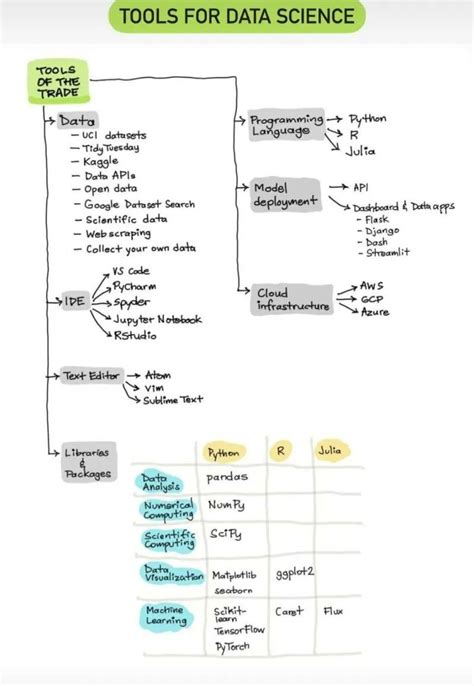 TOOLS FOR DATA SCIENCE
TOOLS
OF THE
TRADE
Data
- UCI datasets
- TidyTuesday
- Kaggle
- Data APIs
- Open data
- Google Dataset Search
- Scientific data
- Web scraping
- Collect your own data
IDE
VS Code
PyCharm
Spyder
Jupyter Notebook
RStudio
Text Editor
Atom
Vim
Sublime Text
Libraries
&
Packages
Programming
Language
Python
R
Julia
Model
deployment
API
Dashboard & Data apps
- Flask
- Django
- Dash
- Streamlit
Cloud
infrastructure
AWS
GCP
Azure
Python R Julia
Data
Analysis
pandas
Numerical
Computing
NumPy
Scientific
Computing
SciPy
Data
Visualization
Matplotlib
seaborn
ggplot2
Machine
Learning
Scikit-
learn
TensorFlow
PyTorch
Caret
Flux